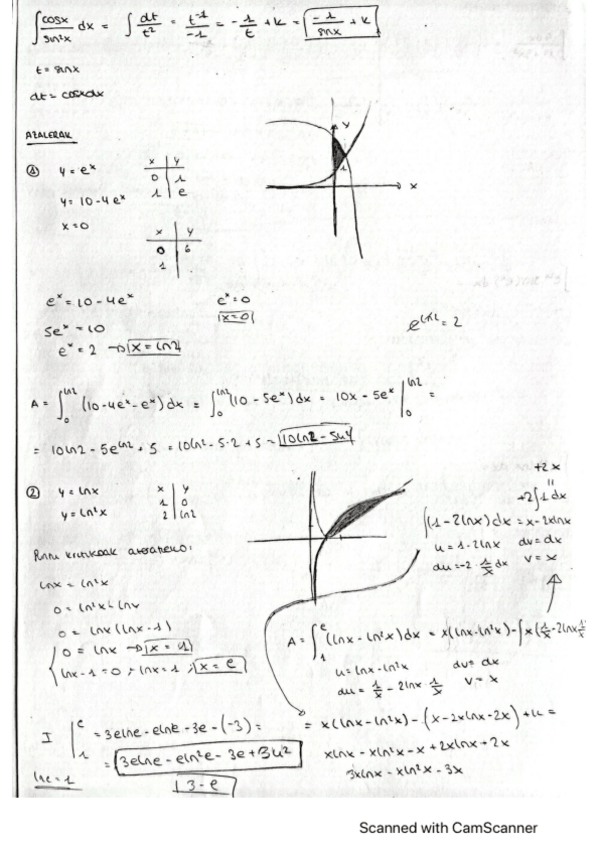 ∫ cosx/sin²x dx = ∫ dt/t² = t⁻¹/-1 = -1/t + k = -1/sinx + k
t = sinx
dt = cosxdx
AZALERAK
① y = eˣ
x | y
0 | 1
1 | e
y = 10 - 4eˣ
x = 0
x | y
0 | 6
1 |
y
x
eˣ = 10 - 4eˣ
eˣ = 0
5eˣ = 10
x = 0
eˣ = 2 → x = ln2
e^(ln2) = 2
A = ∫₀^ln2 (10 - 4eˣ - eˣ) dx = ∫₀^ln2 (10 - 5eˣ) dx = 10x - 5eˣ |₀^ln2 =
= 10ln2 - 5e^ln2 + 5 = 10ln2 - 5·2 + 5 = 10ln2 - 5u²
② y = lnx
y = ln²x
x | y
1 | 0
2 | ln2
+2x
+2∫1dx
∫(1 - 2lnx) dx = x - 2xlnx
u = 1 - 2lnx dv = dx
du = -2 · 1/x dx v = x
lnx = ln²x
0 = ln²x - lnx
0 = lnx (lnx - 1)
0 = lnx → x = 1
lnx - 1 = 0; lnx = 1; x = e
A = ∫₁^e (lnx - ln²x) dx = x(lnx - ln²x) - ∫x(1/x - 2lnx 1/x
u = lnx - ln²x dv = dx
du = 1/x - 2lnx · 1/x v = x
= x(lnx - ln²x) - (x - 2xlnx - 2x) + k =
xlnx - xln²x - x + 2xlnx + 2x
3xlnx - xln²x - 3x
I |₁^e = 3elne - elne - 3e - (-3) =
= 3elne - eln²e - 3e + 3u²
lne = 1
3 - e
Scanned with CamScanner